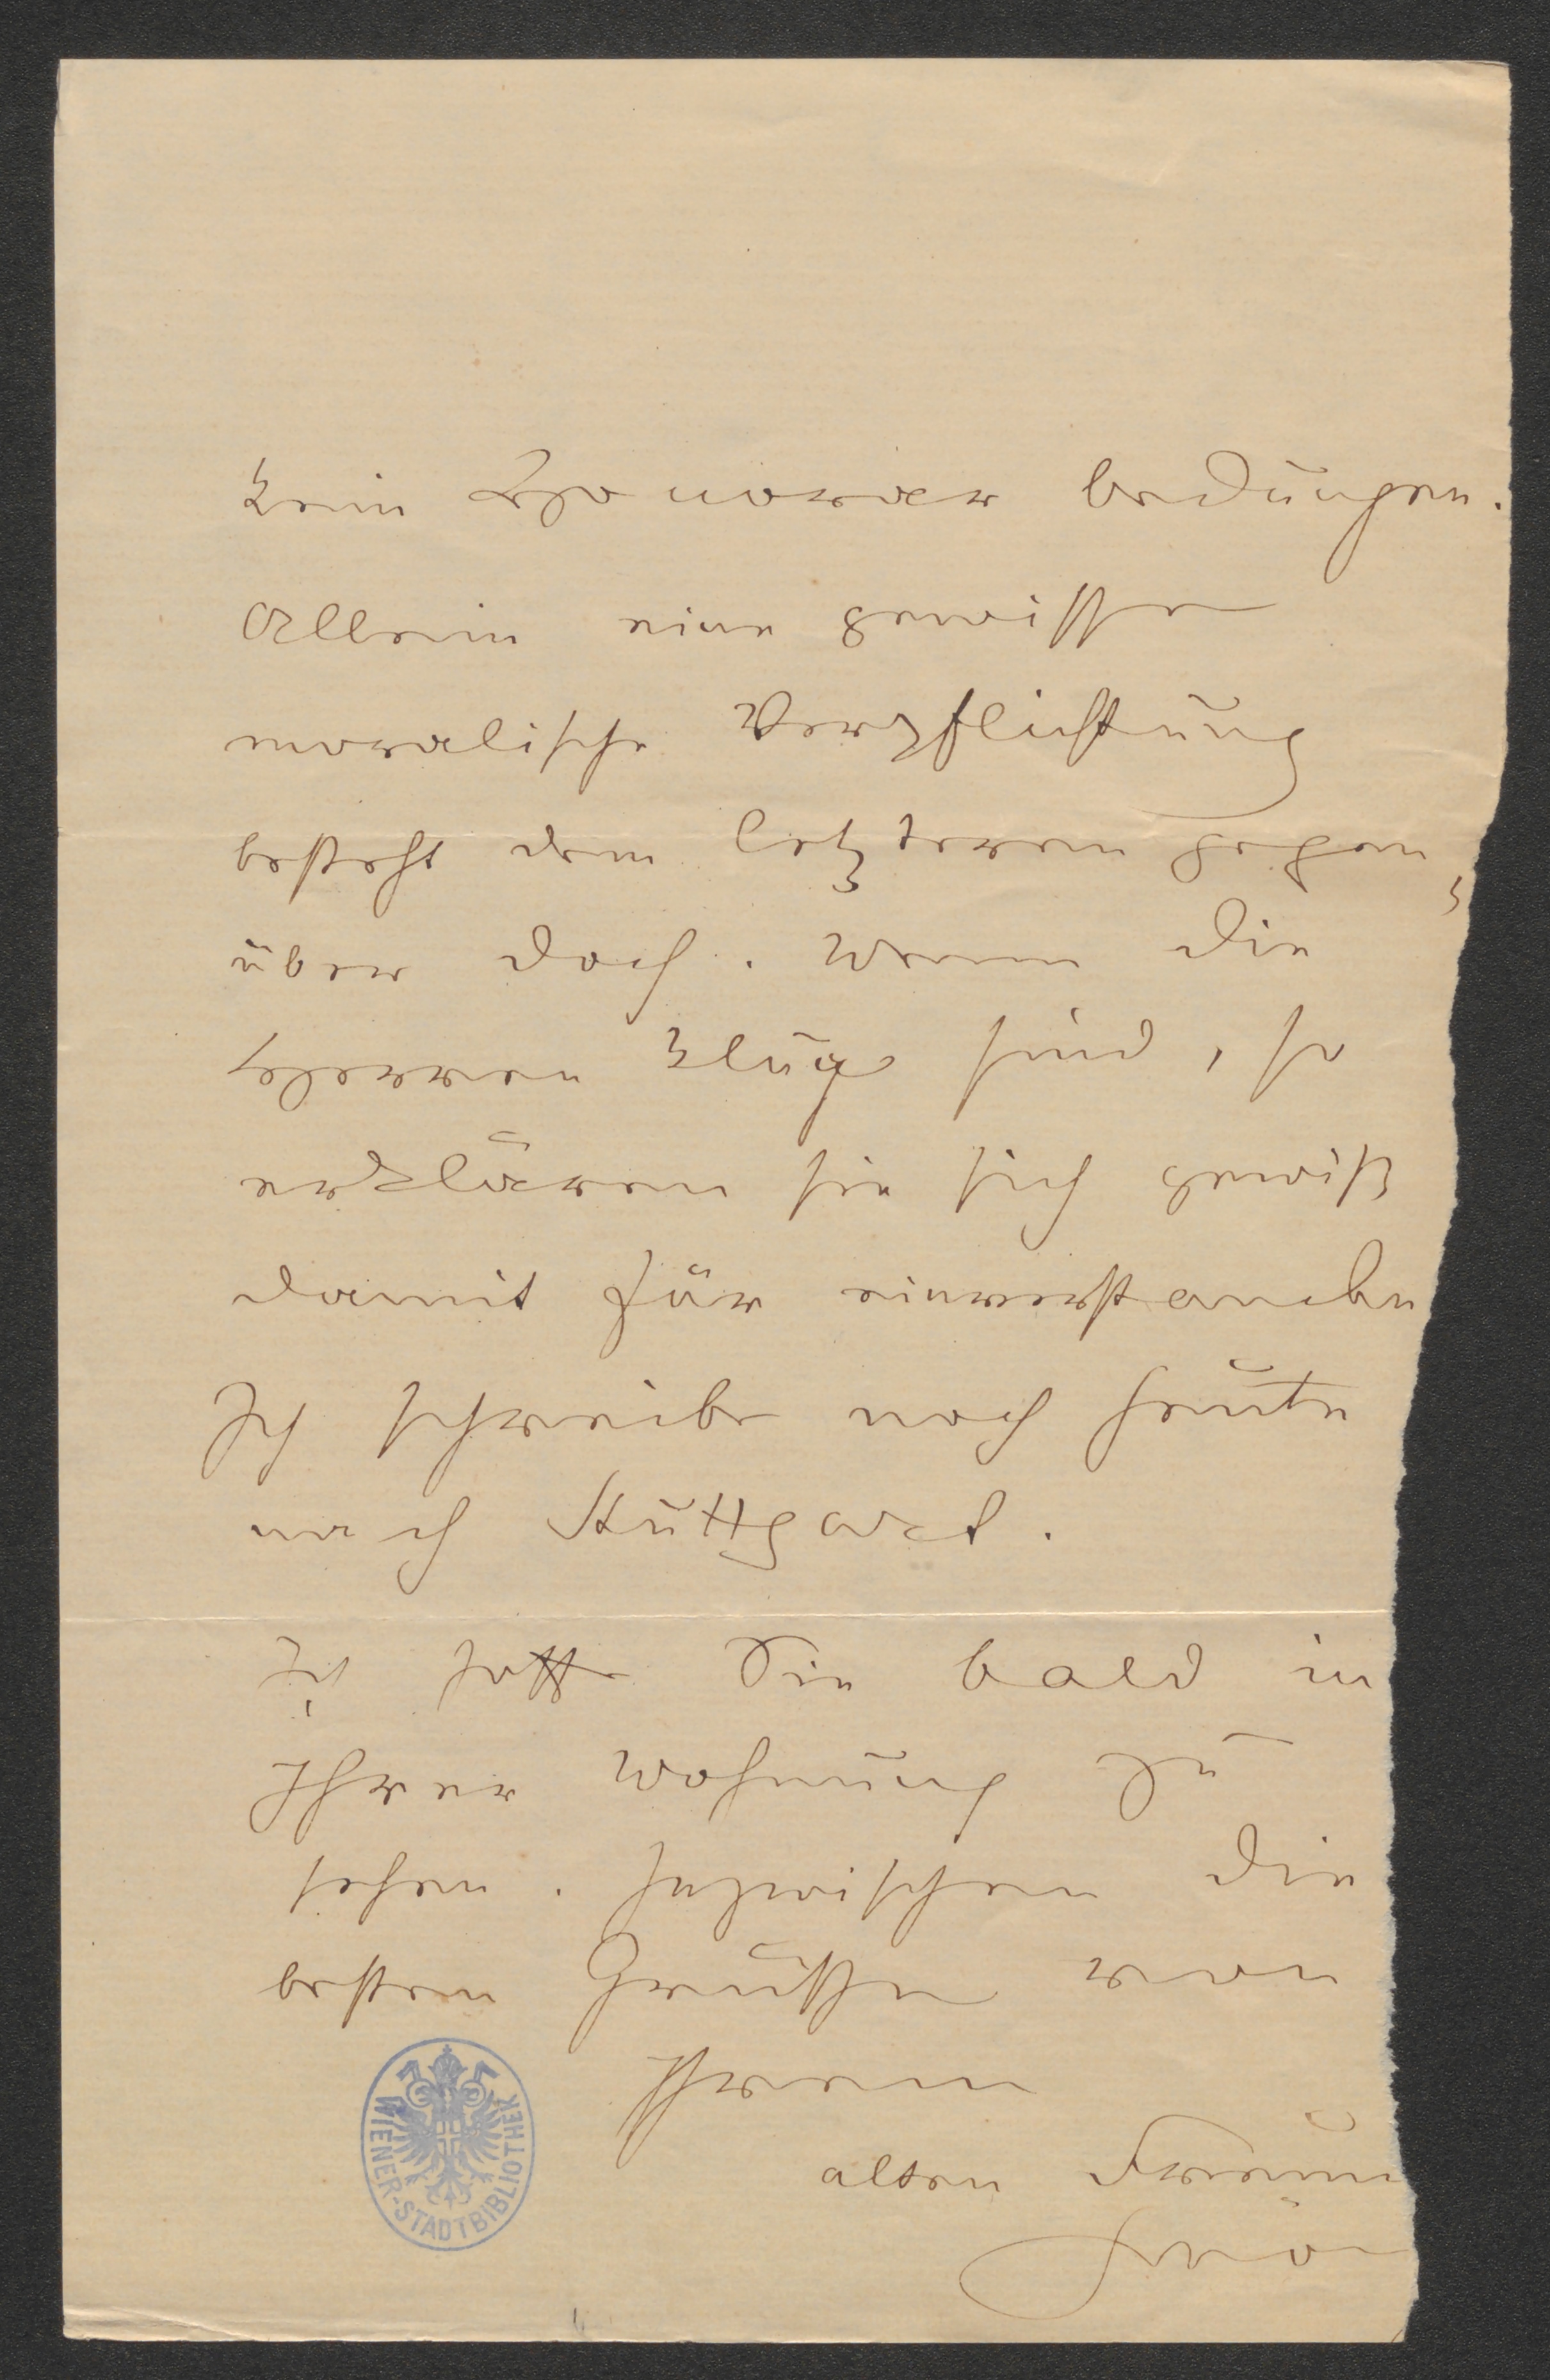 kein Honorar bedungen.
Allein eine gewisse
moralische Verpflichtung
besteht dem letzteren gegen
über doch. Wenn die
Herren klug sind, so
erklären sie sich gewiß
damit für einverstanden
Ich schreibe noch heute
nach Stuttgart.
Ich hoffe Sie bald in
Ihrer Wohnung zu
sehen. Inzwischen die
besten Grüße von
Ihrem
alten Freun
WIENER-STADTBIBLIOTHEK